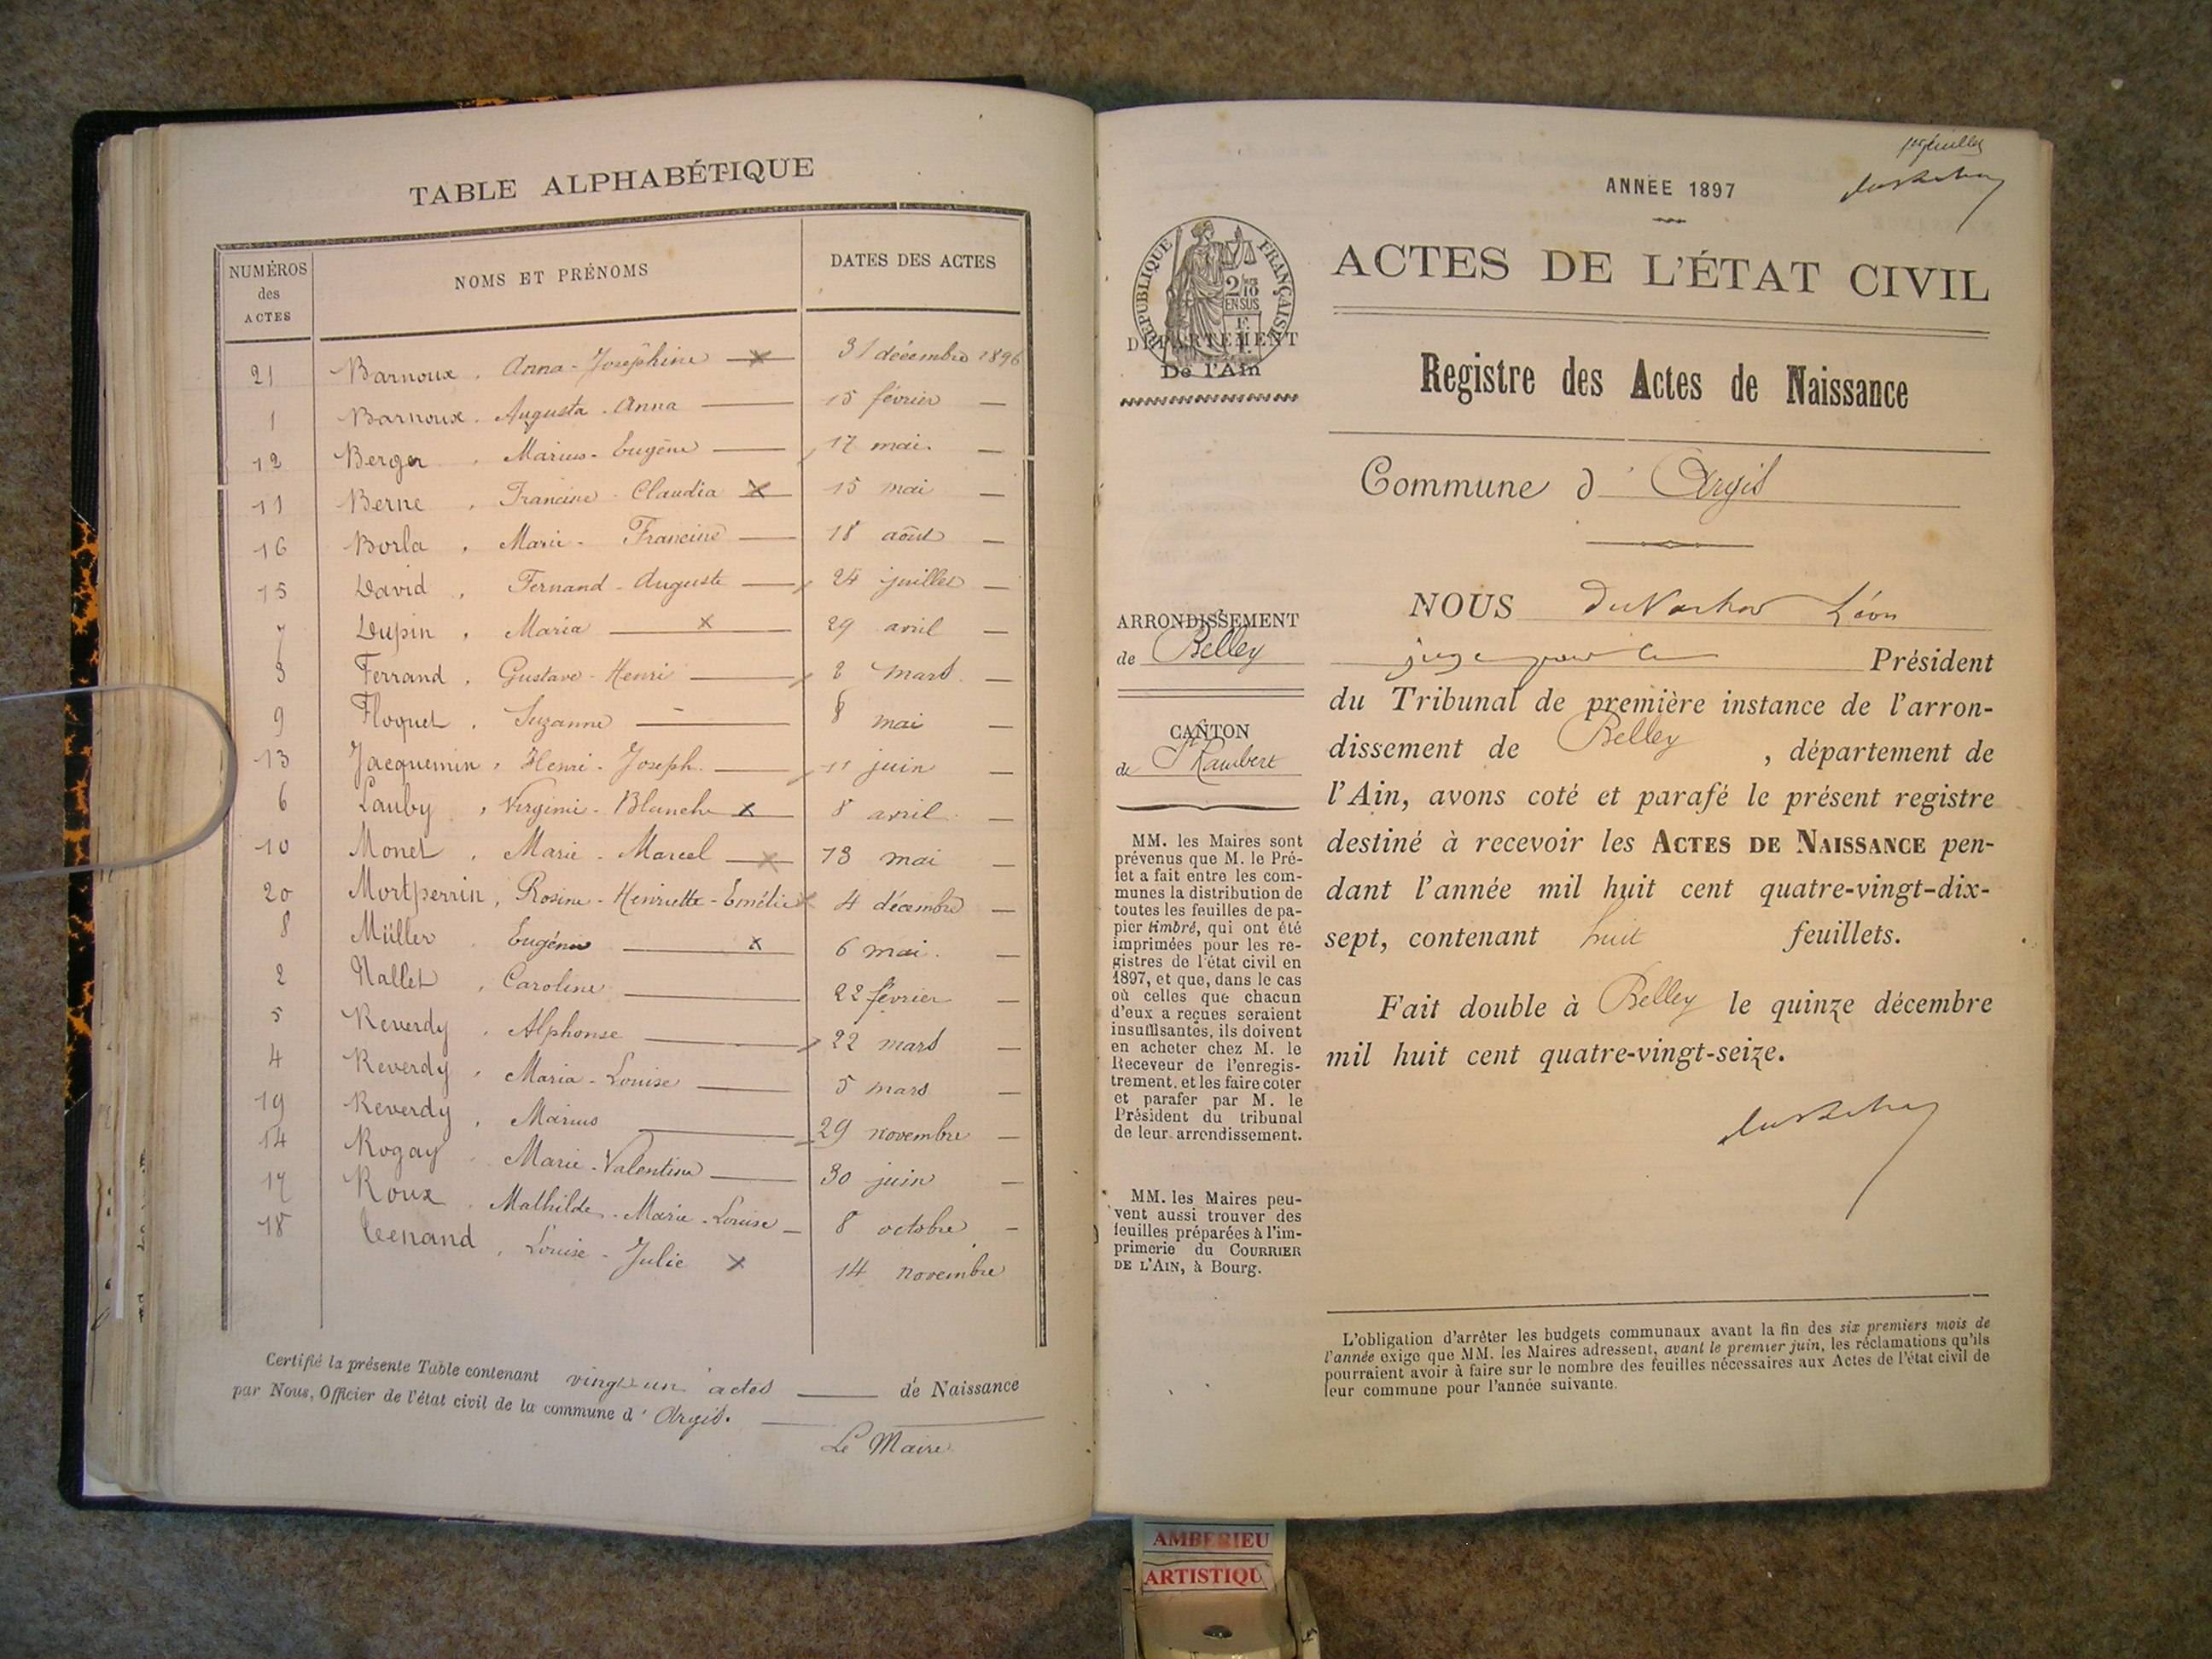 TABLE ALPHABÉTIQUE
NUMÉROS des ACTES
NOMS ET PRÉNOMS
DATES DES ACTES
21 Barnoux, Anna-Joséphine 31 décembre 1896
1 Barnoux, Augusta-Anna 15 février
12 Berger, Marius-Eugène 17 mai
11 Berne, Francine-Claudia 15 mai
16 Borla, Marie-Francine 18 août
15 David, Fernand-Auguste 24 juillet
7 Dupin, Maria 29 avril
3 Ferrand, Gustave-Henri 2 mars
9 Floquet, Suzanne 8 mai
13 Jacquemin, Henri-Joseph 11 juin
6 Lauby, Virginie-Blanche 8 avril
10 Monet, Marie-Marcel 13 mai
20 Mortperrin, Rosine-Henriette-Emélie 4 décembre
8 Müller Eugénie 6 mai
2 Nallet, Caroline 22 février
5 Reverdy, Alphonse 22 mars
4 Reverdy, Maria-Louise 5 mars
19 Reverdy, Marius 29 novembre
14 Rogay Marie-Valentine 30 juin
17 Roux, Mathilde-Marie-Louise 8 octobre
18 Louise-Julie 14 novembre
Certifié la présente Table contenant vingt un actes de Naissance
par Nous, Officier de l'état civil de la commune d'Argis.
Le Maire
ANNÉE 1897
ACTES DE L'ÉTAT CIVIL
RÉPUBLIQUE FRANÇAISE
2/10 EN SUS
DÉPARTEMENT
De l'Ain
Registre des Actes de Naissance
Commune d'Argis
ARRONDISSEMENT
de Belley
CANTON
de St Rambert
MM. les Maires sont
prévenus que M. le Pré-
fet a fait entre les com-
munes la distribution de
toutes les feuilles de pa-
pier timbré, qui ont été
imprimées pour les re-
gistres de l'état civil en
1897, et que, dans le cas
où celles que chacun
d'eux a reçues seraient
insuffisantes, ils doivent
en acheter chez M. le
Receveur de l'enregis-
trement, et les faire coter
et parafer par M. le
Président du tribunal
de leur arrondissement.
MM. les Maires peu-
vent aussi trouver des
feuilles préparées à l'im-
primerie du COURRIER
DE L'AIN, à Bourg.
NOUS Léon
Président
du Tribunal de première instance de l'arron-
dissement de Belley, département de
l'Ain, avons coté et parafé le présent registre
destiné à recevoir les ACTES DE NAISSANCE pen-
dant l'année mil huit cent quatre-vingt-dix-
sept, contenant huit feuillets.
Fait double à Belley le quinze décembre
mil huit cent quatre-vingt-seize.
L'obligation d'arrêter les budgets communaux avant la fin des six premiers mois de
l'année exige que MM. les Maires adressent, avant le premier juin, les réclamations qu'ils
pourraient avoir à faire sur le nombre des feuilles nécessaires aux Actes de l'état civil de
leur commune pour l'année suivante.
AMBERIEU
ARTISTIQU